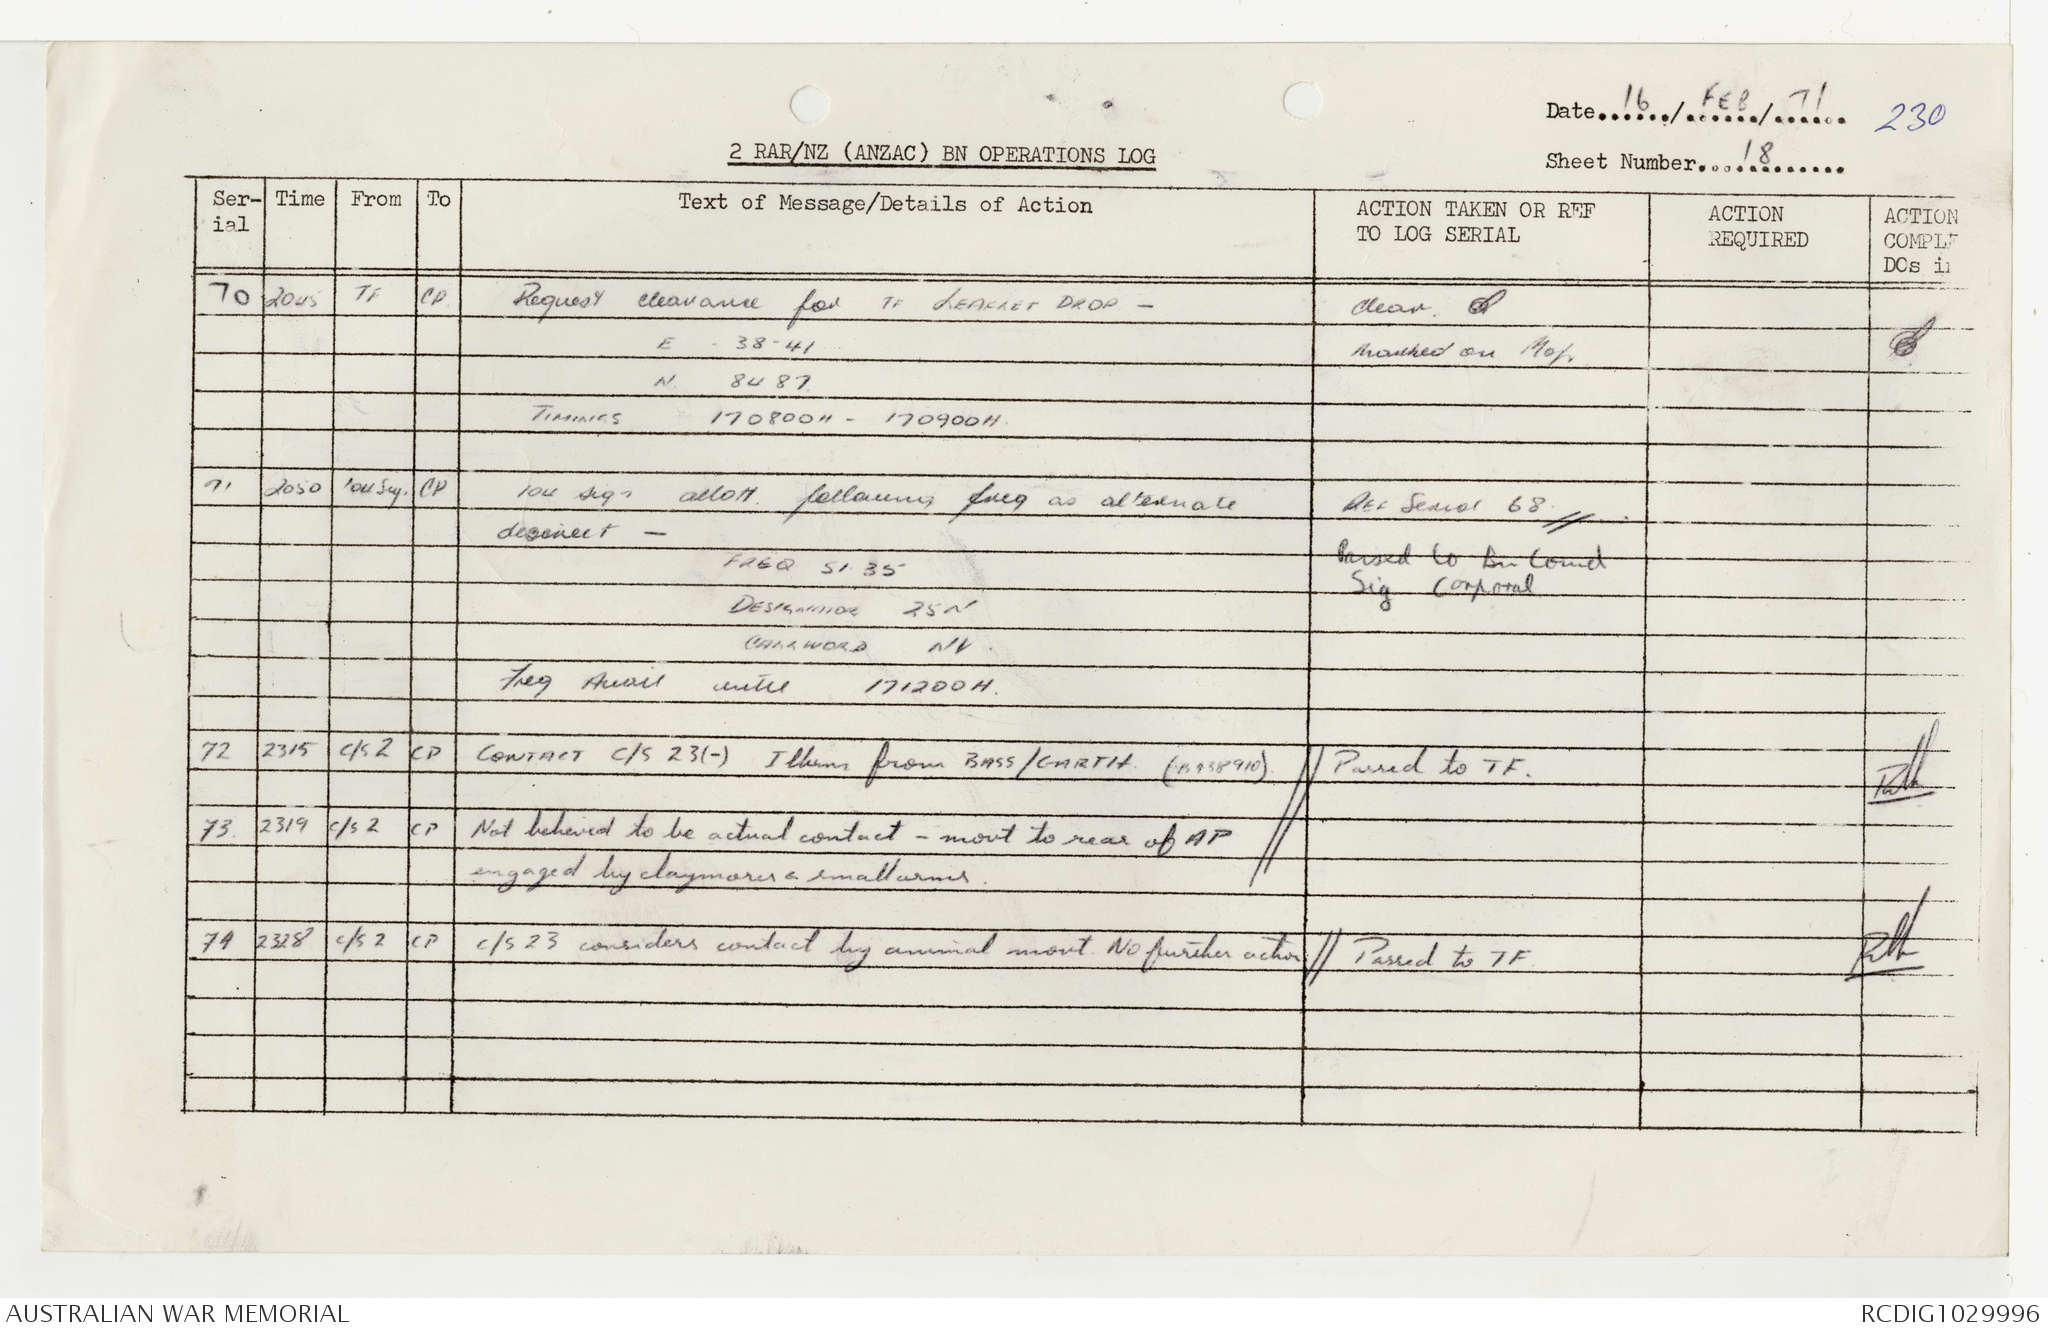 Date 16/FEB/71 230
2 RAR/NZ (ANZAC) BN OPERATIONS LOG
Sheet Number 18
Ser-
ial Time From To Text of Message/Details of Action ACTION TAKEN OR REF
TO LOG SERIAL ACTION
REQUIRED ACTION
COMPLE
DCs in
70 2045 TF CP Request clearance for TF LEAFLET DROP - clear.
E - 38-41 marked on Map
N. 84 87
TIMINGS 170800H - 170900H.
71 2050 104 Sig. CP 104 sigs allott following freq as alternate REF Serial 68
-
FREQ 51.35 Passed to Bn Comd
Sig Corporal
25N
Freq Avail until 171200H.
72 2315 C/S 2 CP CONTACT C/S 23(-) Illum from BASS/GARTH. Passed to TF.
73. 2319 C/S 2 CP Not believed to be actual contact - movt to rear of AP
engaged by claymores & smallarms.
74 2328 C/S 2 CP C/S 23 considers contact by animal movt. No further action Passed to TF
AUSTRALIAN WAR MEMORIAL RCDIG1029996